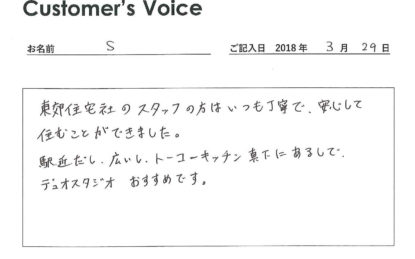 Customer's Voice
お名前 S ご記入日 2018年 3月 29日
東郊住宅社のスタッフの方はいつも丁寧で、安心して
住むことができました。
駅近だし、広いし、トーコーキッチン真下にあるしで、
デュオスタジオ おすすめです。